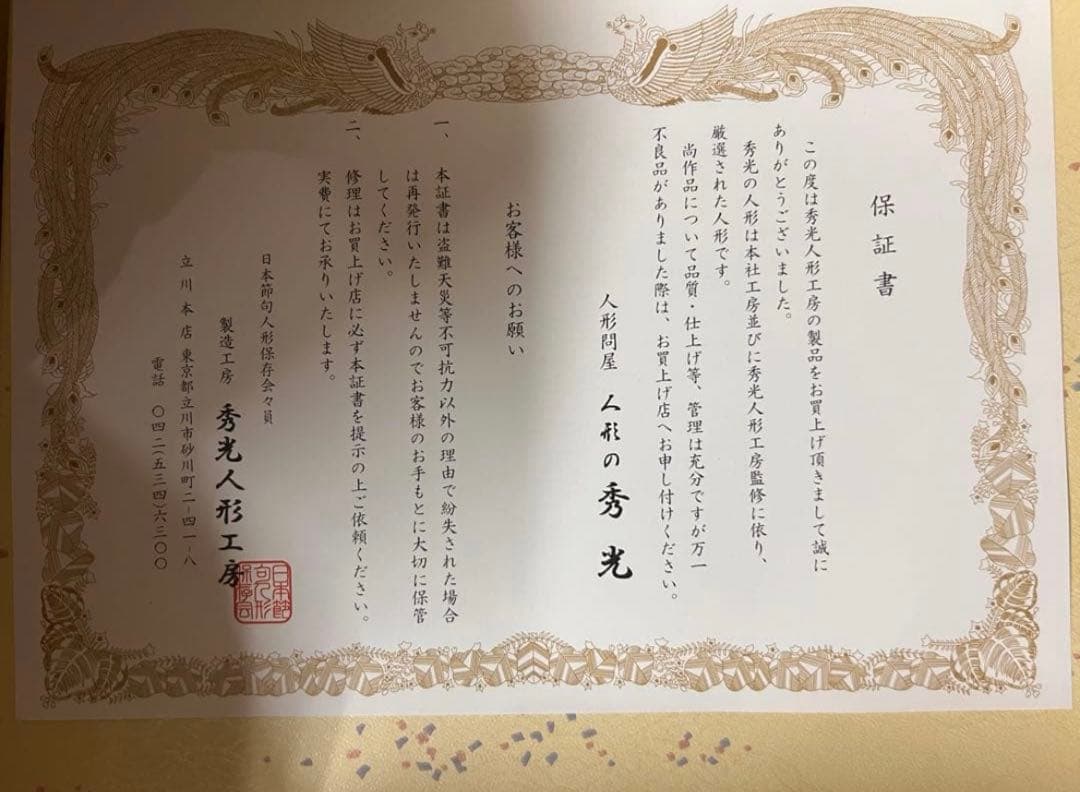 保証書
この度は秀光人形工房の製品をお買上げ頂きまして誠に
ありがとうございました。
秀光の人形は本社工房並びに秀光人形工房監修に依り、
厳選された人形です。
尚作品について品質・仕上げ等、管理は充分ですが万一
不良品がありました際は、お買上げ店へお申し付けください。
人形問屋 人形の秀光
お客様へのお願い
一、本証書は盗難天災等不可抗力以外の理由で紛失された場合
は再発行いたしませんのでお客様のお手もとに大切に保管
してください。
二、修理はお買上げ店に必ず本証書を提示の上ご依頼ください。
実費にてお承りいたします。
日本節句人形保存会々員
製造工房 秀光人形工房
日本節句人形保存会
立川本店 東京都立川市砂川町二-四一-八
電話 〇四二(五三四)六三〇〇